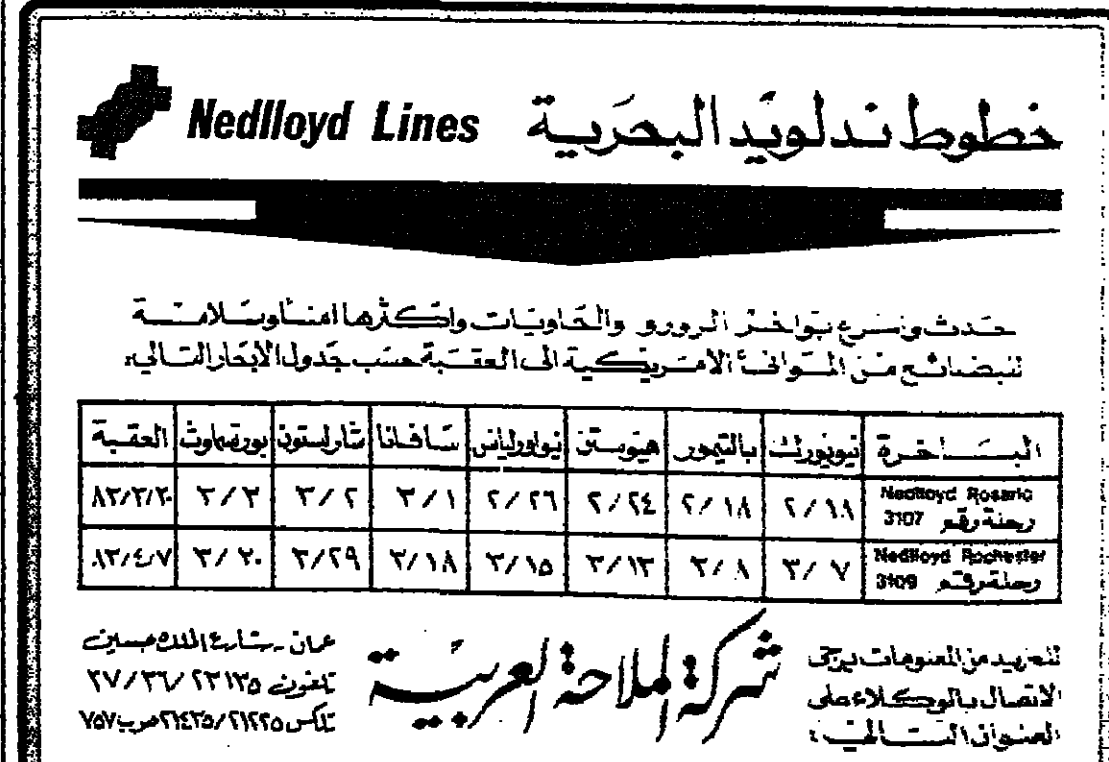 خطوط ندلويد البحرية Nedlloyd Lines
حدث واسرع بواخر الرورو والحاويات واكثرها امنا وسلامة
للبضائع من الموانئ الامريكية الى العقبة حسب جدول الابحار التالي:
الباخرة نيويورك بالتيمور هيوستن نيواورليانس سافانا شارلستون بورتسماوث العقبة
Nedlloyd Rosario رحلة رقم 3107 ٢/١٨ ٢/١٨ ٢/٢٤ ٢/٢٦ ٣/١ ٣/٢ ٣/٣ ٨٣/٣/٢٠
Nedlloyd Rochester رحلة رقم 3109 ٣/٧ ٣/٨ ٣/١٣ ٣/١٥ ٣/١٨ ٣/٢٩ ٣/٢٠ ٨٣/٤/٧
للمزيد من المعلومات يرجى
الاتصال بالوكلاء على
العنوان التالي:
شركة الملاحة العربية
عمان - شارع الملك حسين
تلفون ٢٣١٣٥/٣٦/٣٧
تلكس ٢١٢٢٥/٢١٤٣٥ ص.ب ٧٥٧